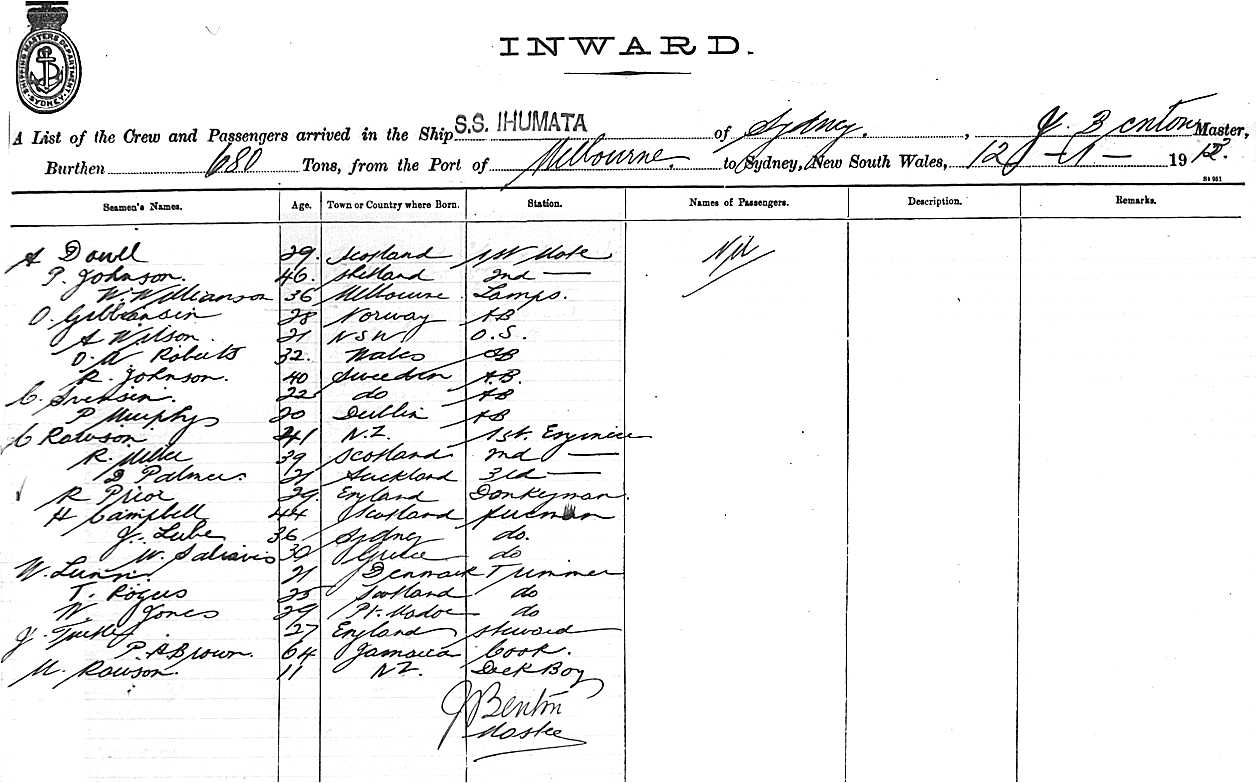 SHIPPING MASTERS DEPARTMENT SYDNEY
INWARD.
A List of the Crew and Passengers arrived in the Ship S.S. IHUMATA of Sydney, J. Benton Master,
Burthen 680 Tons, from the Port of Melbourne to Sydney, New South Wales, 12 - 1 - 1913
Seamen's Names. Age. Town or Country where Born. Station. Names of Passengers. Description. Remarks.
A 29. Scotland 1st Mate Nil
P. Johnson. 46. Shetland 2nd —
W. Williamson 36 Melbourne Lamps.
O. 28 Norway AB
A Wilson. 21 NSW O.S.
O. W. Roberts 32. Wales AB
R. Johnson. 40 Sweeden A.B.
C. Svensen. 22 do AB
P Murphy 20 Dublin AB
C Rawson 41 N.Z. 1st. Engineer
R. Miller 39 Scotland 2nd —
D Palmer. 21 Auckland 3rd —
R Prior 29 England Donkeyman.
H Campbell 44 Scotland fireman
J. Lube 36 Sydney do.
W. 30 Greece do
W. Lunn. 21 Denmark Trimmer
T. Rogers 25 Scotland do
W. Jones 29 Pt. Madoc do
J. 27 England Steward
P. A Brown. 64 Jamaica Cook.
M. Rawson. 11 N.Z. Deck Boy
J Benton
Master